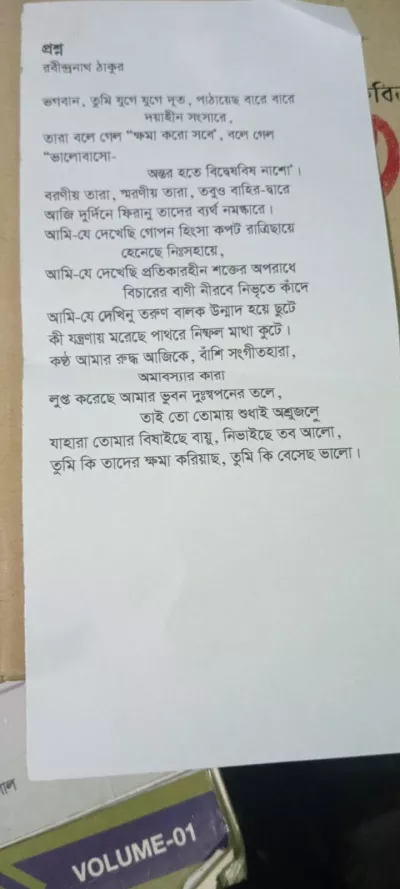 প্রশ্ন
রবীন্দ্রনাথ ঠাকুর
ভগবান, তুমি যুগে যুগে দূত, পাঠায়েছ বারে বারে
দয়াহীন সংসারে,
তারা বলে গেল “ক্ষমা করো সবে’, বলে গেল
“ভালোবাসো-
অন্তর হতে বিদ্বেষবিষ নাশো’।
বরণীয় তারা, স্মরণীয় তারা, তবুও বাহির-দ্বারে
আজি দুর্দিনে ফিরানু তাদের ব্যর্থ নমস্কারে।
আমি-যে দেখেছি গোপন হিংসা কপট রাত্রিছায়ে
হেনেছে নিঃসহায়ে,
আমি-যে দেখেছি প্রতিকারহীন শক্তের অপরাধে
বিচারের বাণী নীরবে নিভৃতে কাঁদে
আমি-যে দেখিনু তরুণ বালক উন্মাদ হয়ে ছুটে
কী যন্ত্রণায় মরেছে পাথরে নিষ্ফল মাথা কুটে।
কণ্ঠ আমার রুদ্ধ আজিকে, বাঁশি সংগীতহারা,
অমাবস্যার কারা
লুপ্ত করেছে আমার ভুবন দুঃস্বপনের তলে,
তাই তো তোমায় শুধাই অশ্রুজলে
যাহারা তোমার বিষাইছে বায়ু, নিভাইছে তব আলো,
তুমি কি তাদের ক্ষমা করিয়াছ, তুমি কি বেসেছ ভালো।
VOLUME-01